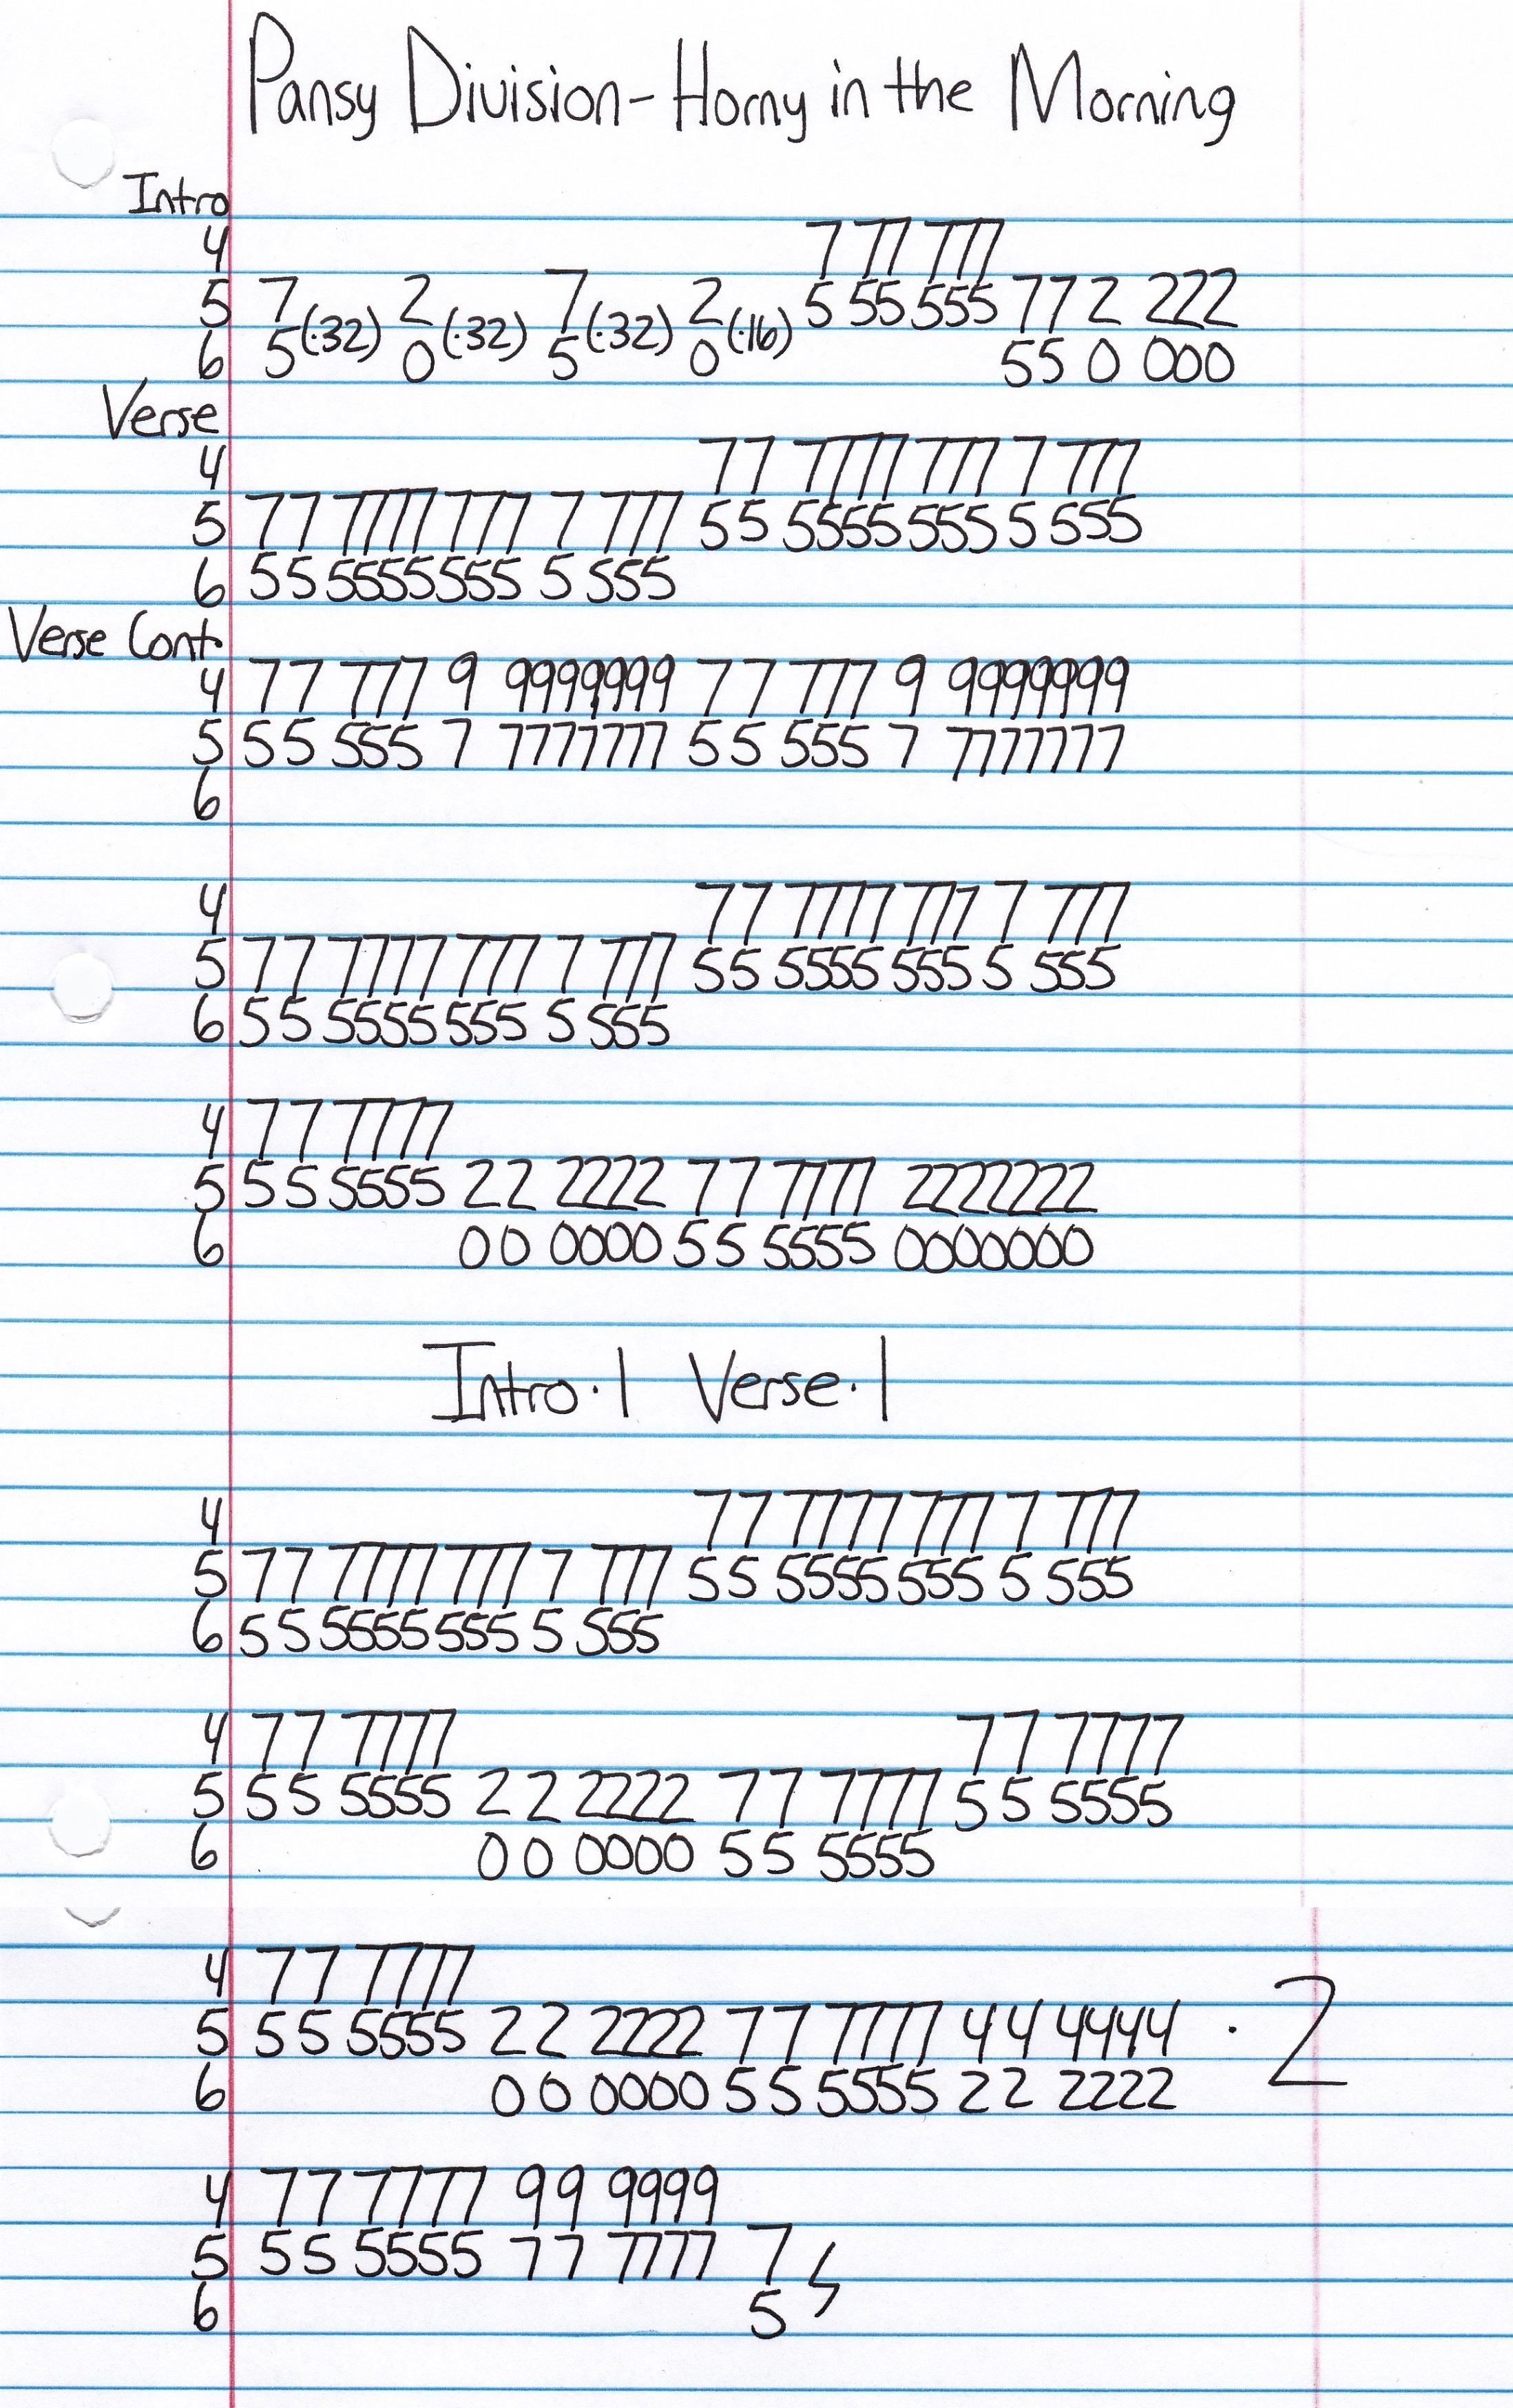 Pansy Division - Horny in the Morning
Intro
4 7 77 777
5 7 (·32) 2 (·32) 7 (·32) 2 (·16) 5 55 555 77 2 222
6 5 0 5 0 55 0 000
Verse
4 77 7777 777 7 777
5 77 7777 777 7 777 55 5555 555 5 555
6 55 5555 555 5 555
Verse Cont.
4 77 777 9 9999999 77 777 9 9999999
5 55 555 7 7777777 55 555 7 7777777
6
4 77 7777 777 7 777
5 77 7777 777 7 777 55 5555 555 5 555
6 55 5555 555 5 555
4 77 7777
5 55 5555 22 2222 77 7777 2222222
6 00 0000 55 5555 0000000
Intro·1 Verse·1
4 77 7777 777 7 777
5 77 7777 777 7 777 55 5555 555 5 555
6 55 5555 555 5 555
4 77 7777 77 7777
5 55 5555 22 2222 77 7777 55 5555
6 00 0000 55 5555
4 77 7777
5 55 5555 22 2222 77 7777 44 4444 · 2
6 00 0000 55 5555 22 2222
4 77 7777 99 9999
5 55 5555 77 7777 7
6 5